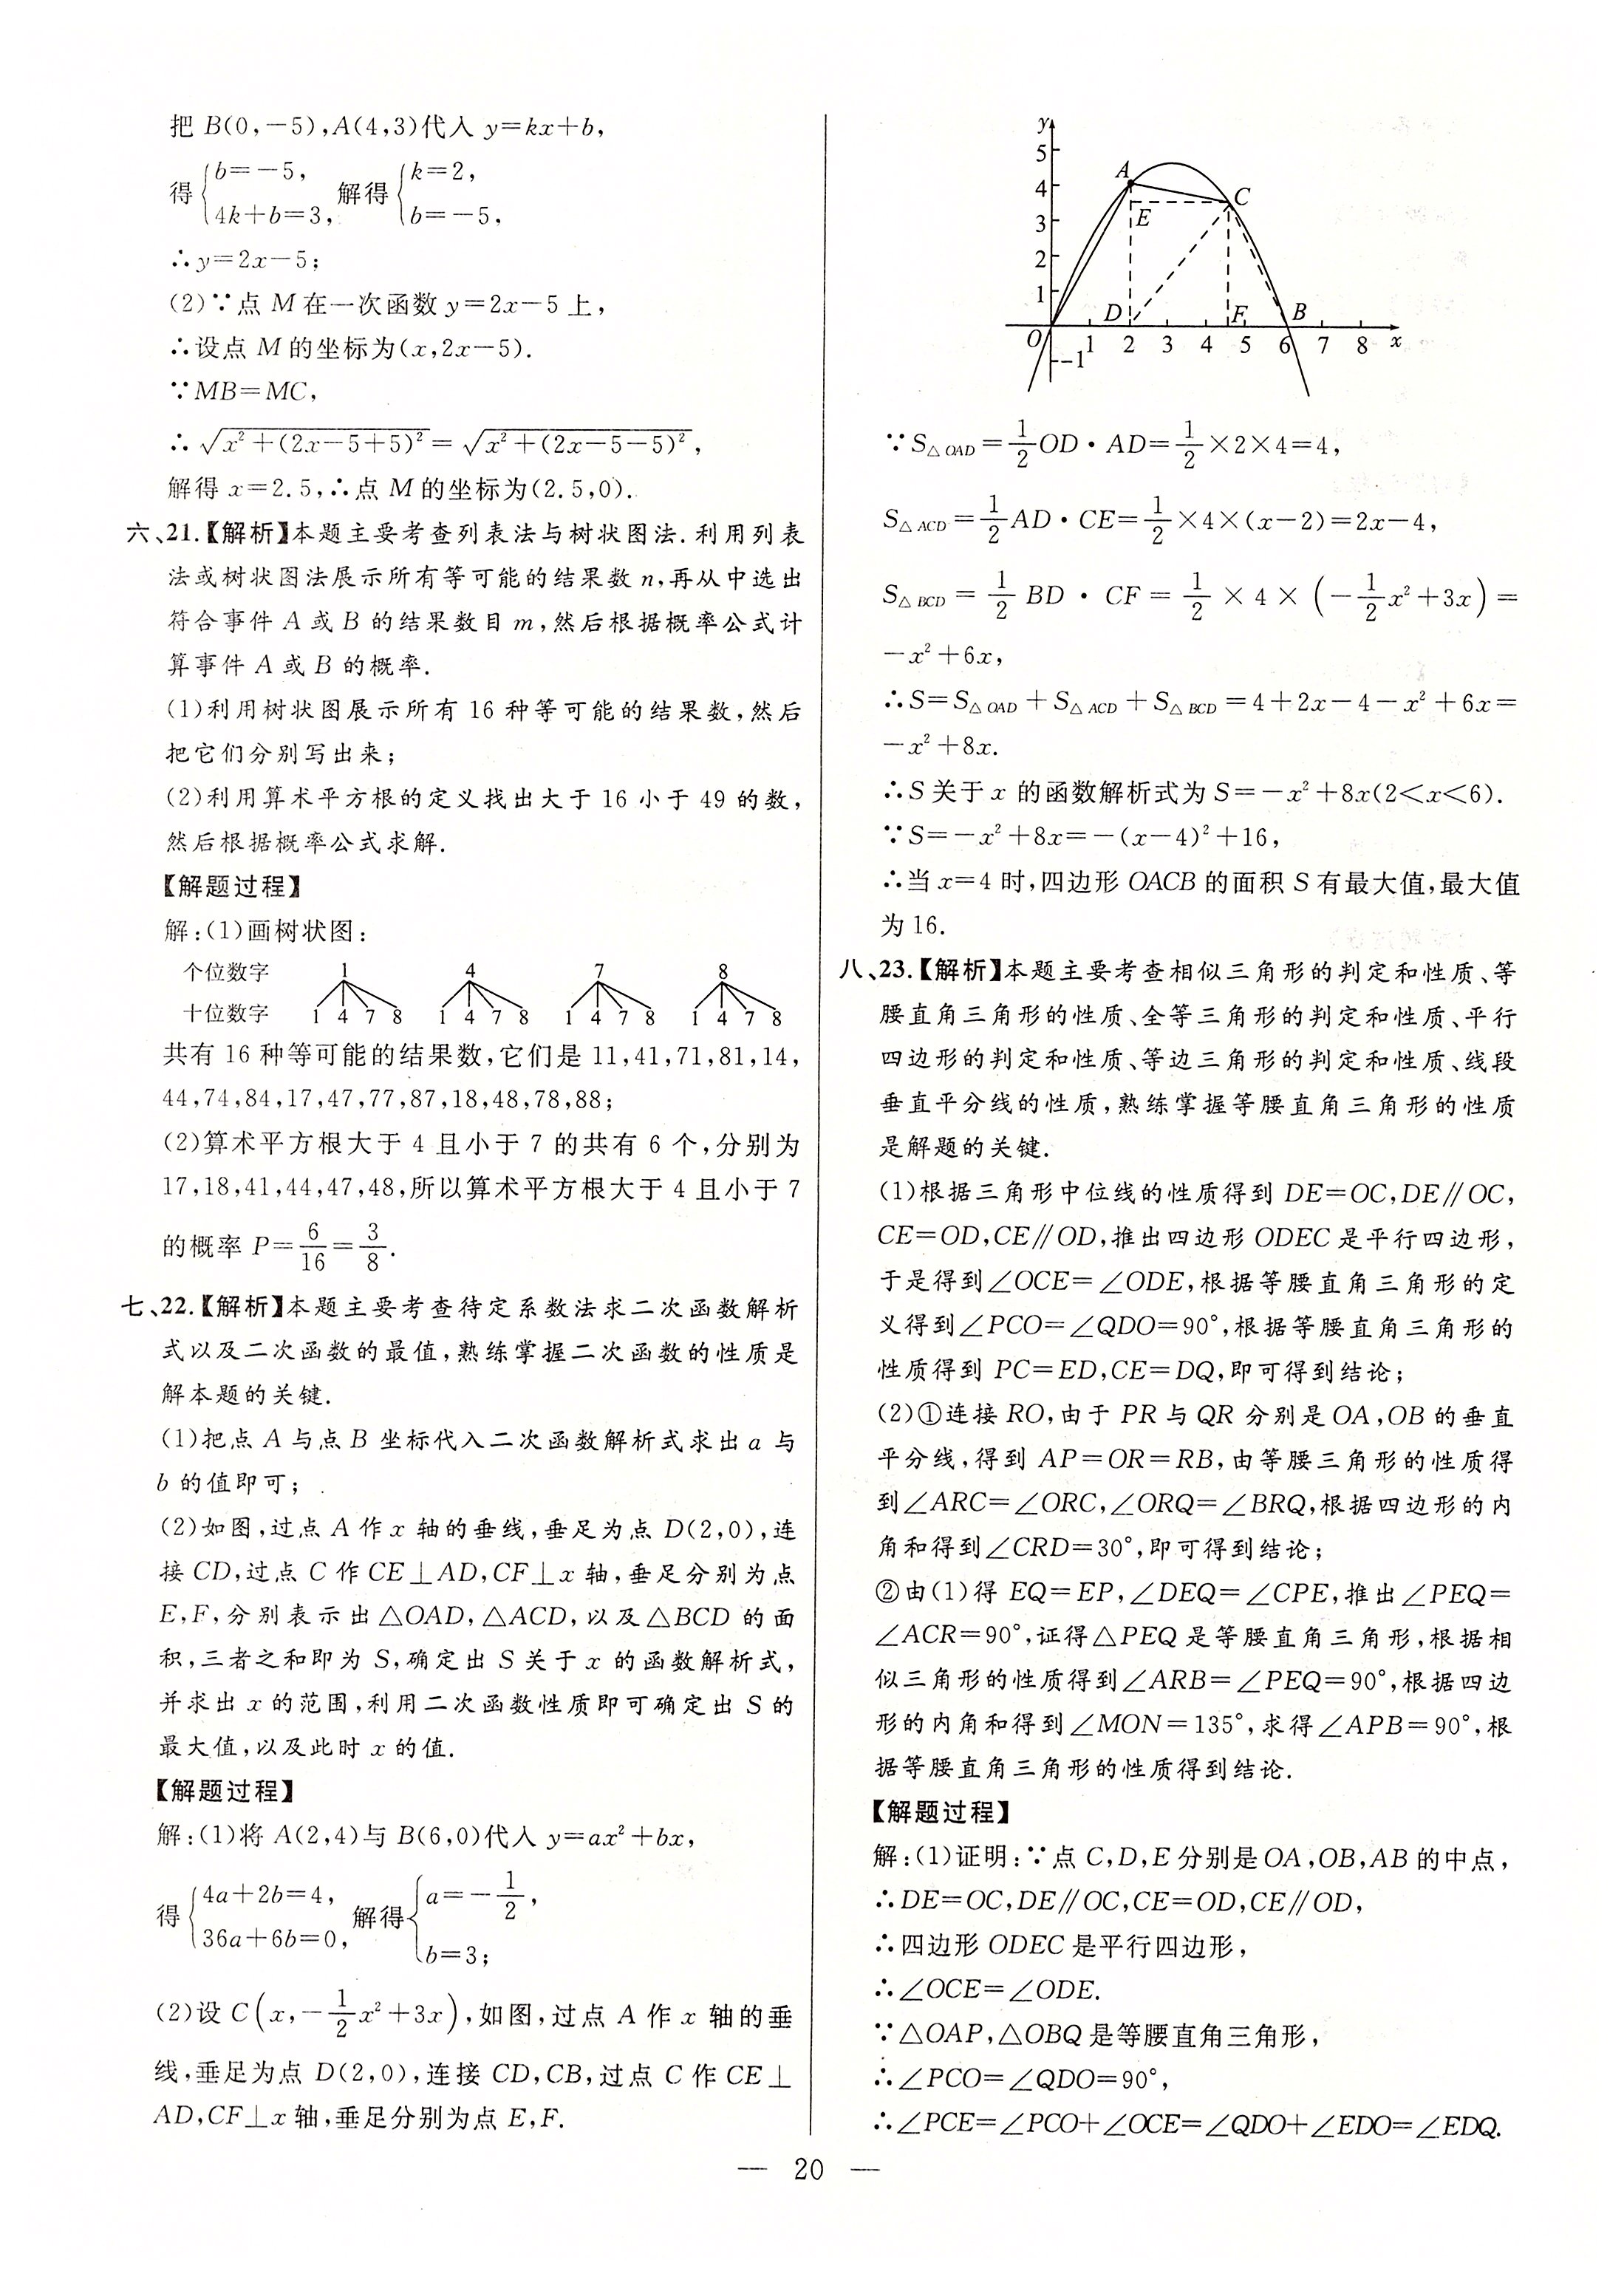 把 B(0,-5),A(4,3)代入 y=kx+b,
得{b=-5, 4k+b=3, 解得{k=2, b=-5,
∴y=2x-5;
(2)∵点 M 在一次函数 y=2x-5 上,
∴设点 M 的坐标为(x,2x-5).
∵MB=MC,
∴√(x²+(2x-5+5)²)=√(x²+(2x-5-5)²),
解得 x=2.5,∴点 M 的坐标为(2.5,0).
六、21.【解析】本题主要考查列表法与树状图法.利用列表
法或树状图法展示所有等可能的结果数 n,再从中选出
符合事件 A 或 B 的结果数目 m,然后根据概率公式计
算事件 A 或 B 的概率.
(1)利用树状图展示所有 16 种等可能的结果数,然后
把它们分别写出来;
(2)利用算术平方根的定义找出大于 16 小于 49 的数,
然后根据概率公式求解.
【解题过程】
解:(1)画树状图:
个位数字 1 4 7 8
十位数字 1 4 7 8 1 4 7 8 1 4 7 8 1 4 7 8
共有 16 种等可能的结果数,它们是 11,41,71,81,14,
44,74,84,17,47,77,87,18,48,78,88;
(2)算术平方根大于 4 且小于 7 的共有 6 个,分别为
17,18,41,44,47,48,所以算术平方根大于 4 且小于 7
的概率 P=6/16=3/8.
七、22.【解析】本题主要考查待定系数法求二次函数解析
式以及二次函数的最值,熟练掌握二次函数的性质是
解本题的关键.
(1)把点 A 与点 B 坐标代入二次函数解析式求出 a 与
b 的值即可;
(2)如图,过点 A 作 x 轴的垂线,垂足为点 D(2,0),连
接 CD,过点 C 作 CE⊥AD,CF⊥x 轴,垂足分别为点
E,F,分别表示出△OAD,△ACD,以及△BCD 的面
积,三者之和即为 S,确定出 S 关于 x 的函数解析式,
并求出 x 的范围,利用二次函数性质即可确定出 S 的
最大值,以及此时 x 的值.
【解题过程】
解:(1)将 A(2,4)与 B(6,0)代入 y=ax²+bx,
得{4a+2b=4, 36a+6b=0, 解得{a=-1/2, b=3;
(2)设 C(x,-1/2x²+3x),如图,过点 A 作 x 轴的垂
线,垂足为点 D(2,0),连接 CD,CB,过点 C 作 CE⊥
AD,CF⊥x 轴,垂足分别为点 E,F.
y
5
A
4
C
E
3
2
1
D F B
O 1 2 3 4 5 6 7 8 x
-1
∵S△OAD=1/2OD·AD=1/2×2×4=4,
S△ACD=1/2AD·CE=1/2×4×(x-2)=2x-4,
S△BCD=1/2BD·CF=1/2×4×(-1/2x²+3x)=
-x²+6x,
∴S=S△OAD+S△ACD+S△BCD=4+2x-4-x²+6x=
-x²+8x.
∴S 关于 x 的函数解析式为 S=-x²+8x(2<x<6).
∵S=-x²+8x=-(x-4)²+16,
∴当 x=4 时,四边形 OACB 的面积 S 有最大值,最大值
为 16.
八、23.【解析】本题主要考查相似三角形的判定和性质、等
腰直角三角形的性质、全等三角形的判定和性质、平行
四边形的判定和性质、等边三角形的判定和性质、线段
垂直平分线的性质,熟练掌握等腰直角三角形的性质
是解题的关键.
(1)根据三角形中位线的性质得到 DE=OC,DE∥OC,
CE=OD,CE∥OD,推出四边形 ODEC 是平行四边形,
于是得到∠OCE=∠ODE,根据等腰直角三角形的定
义得到∠PCO=∠QDO=90°,根据等腰直角三角形的
性质得到 PC=ED,CE=DQ,即可得到结论;
(2)①连接 RO,由于 PR 与 QR 分别是 OA,OB 的垂直
平分线,得到 AP=OR=RB,由等腰三角形的性质得
到∠ARC=∠ORC,∠ORQ=∠BRQ,根据四边形的内
角和得到∠CRD=30°,即可得到结论;
②由(1)得 EQ=EP,∠DEQ=∠CPE,推出∠PEQ=
∠ACR=90°,证得△PEQ 是等腰直角三角形,根据相
似三角形的性质得到∠ARB=∠PEQ=90°,根据四边
形的内角和得到∠MON=135°,求得∠APB=90°,根
据等腰直角三角形的性质得到结论.
【解题过程】
解:(1)证明:∵点 C,D,E 分别是 OA,OB,AB 的中点,
∴DE=OC,DE∥OC,CE=OD,CE∥OD,
∴四边形 ODEC 是平行四边形,
∴∠OCE=∠ODE.
∵△OAP,△OBQ 是等腰直角三角形,
∴∠PCO=∠QDO=90°,
∴∠PCE=∠PCO+∠OCE=∠QDO+∠EDO=∠EDQ.
— 20 —